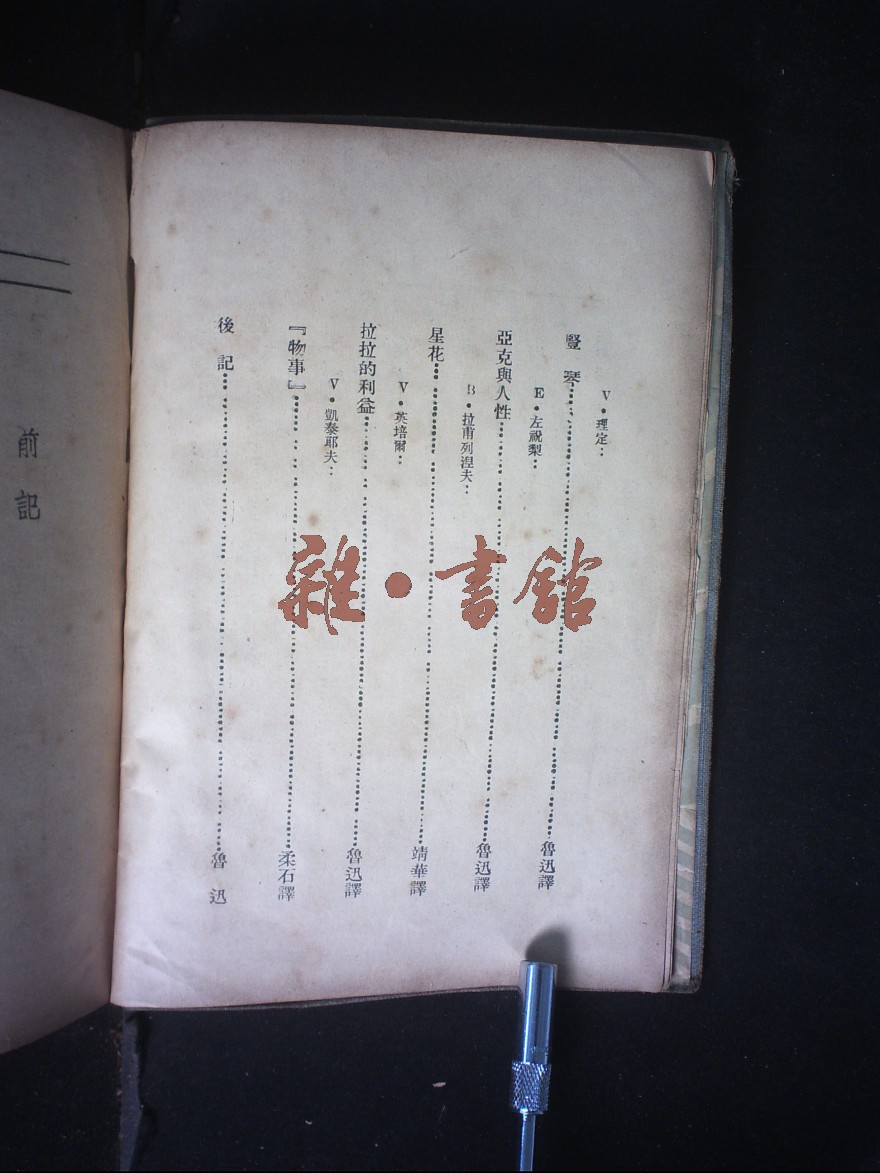 V•理定：
豎琴……魯迅譯
E•左祝梨：
亞克與人性……魯迅譯
B•拉甫列涅夫：
星花……靖華譯
V•英培爾：
拉拉的利益……魯迅譯
V•凱泰耶夫：
『物事』……柔石譯
後記……魯迅
前記
雜•書館